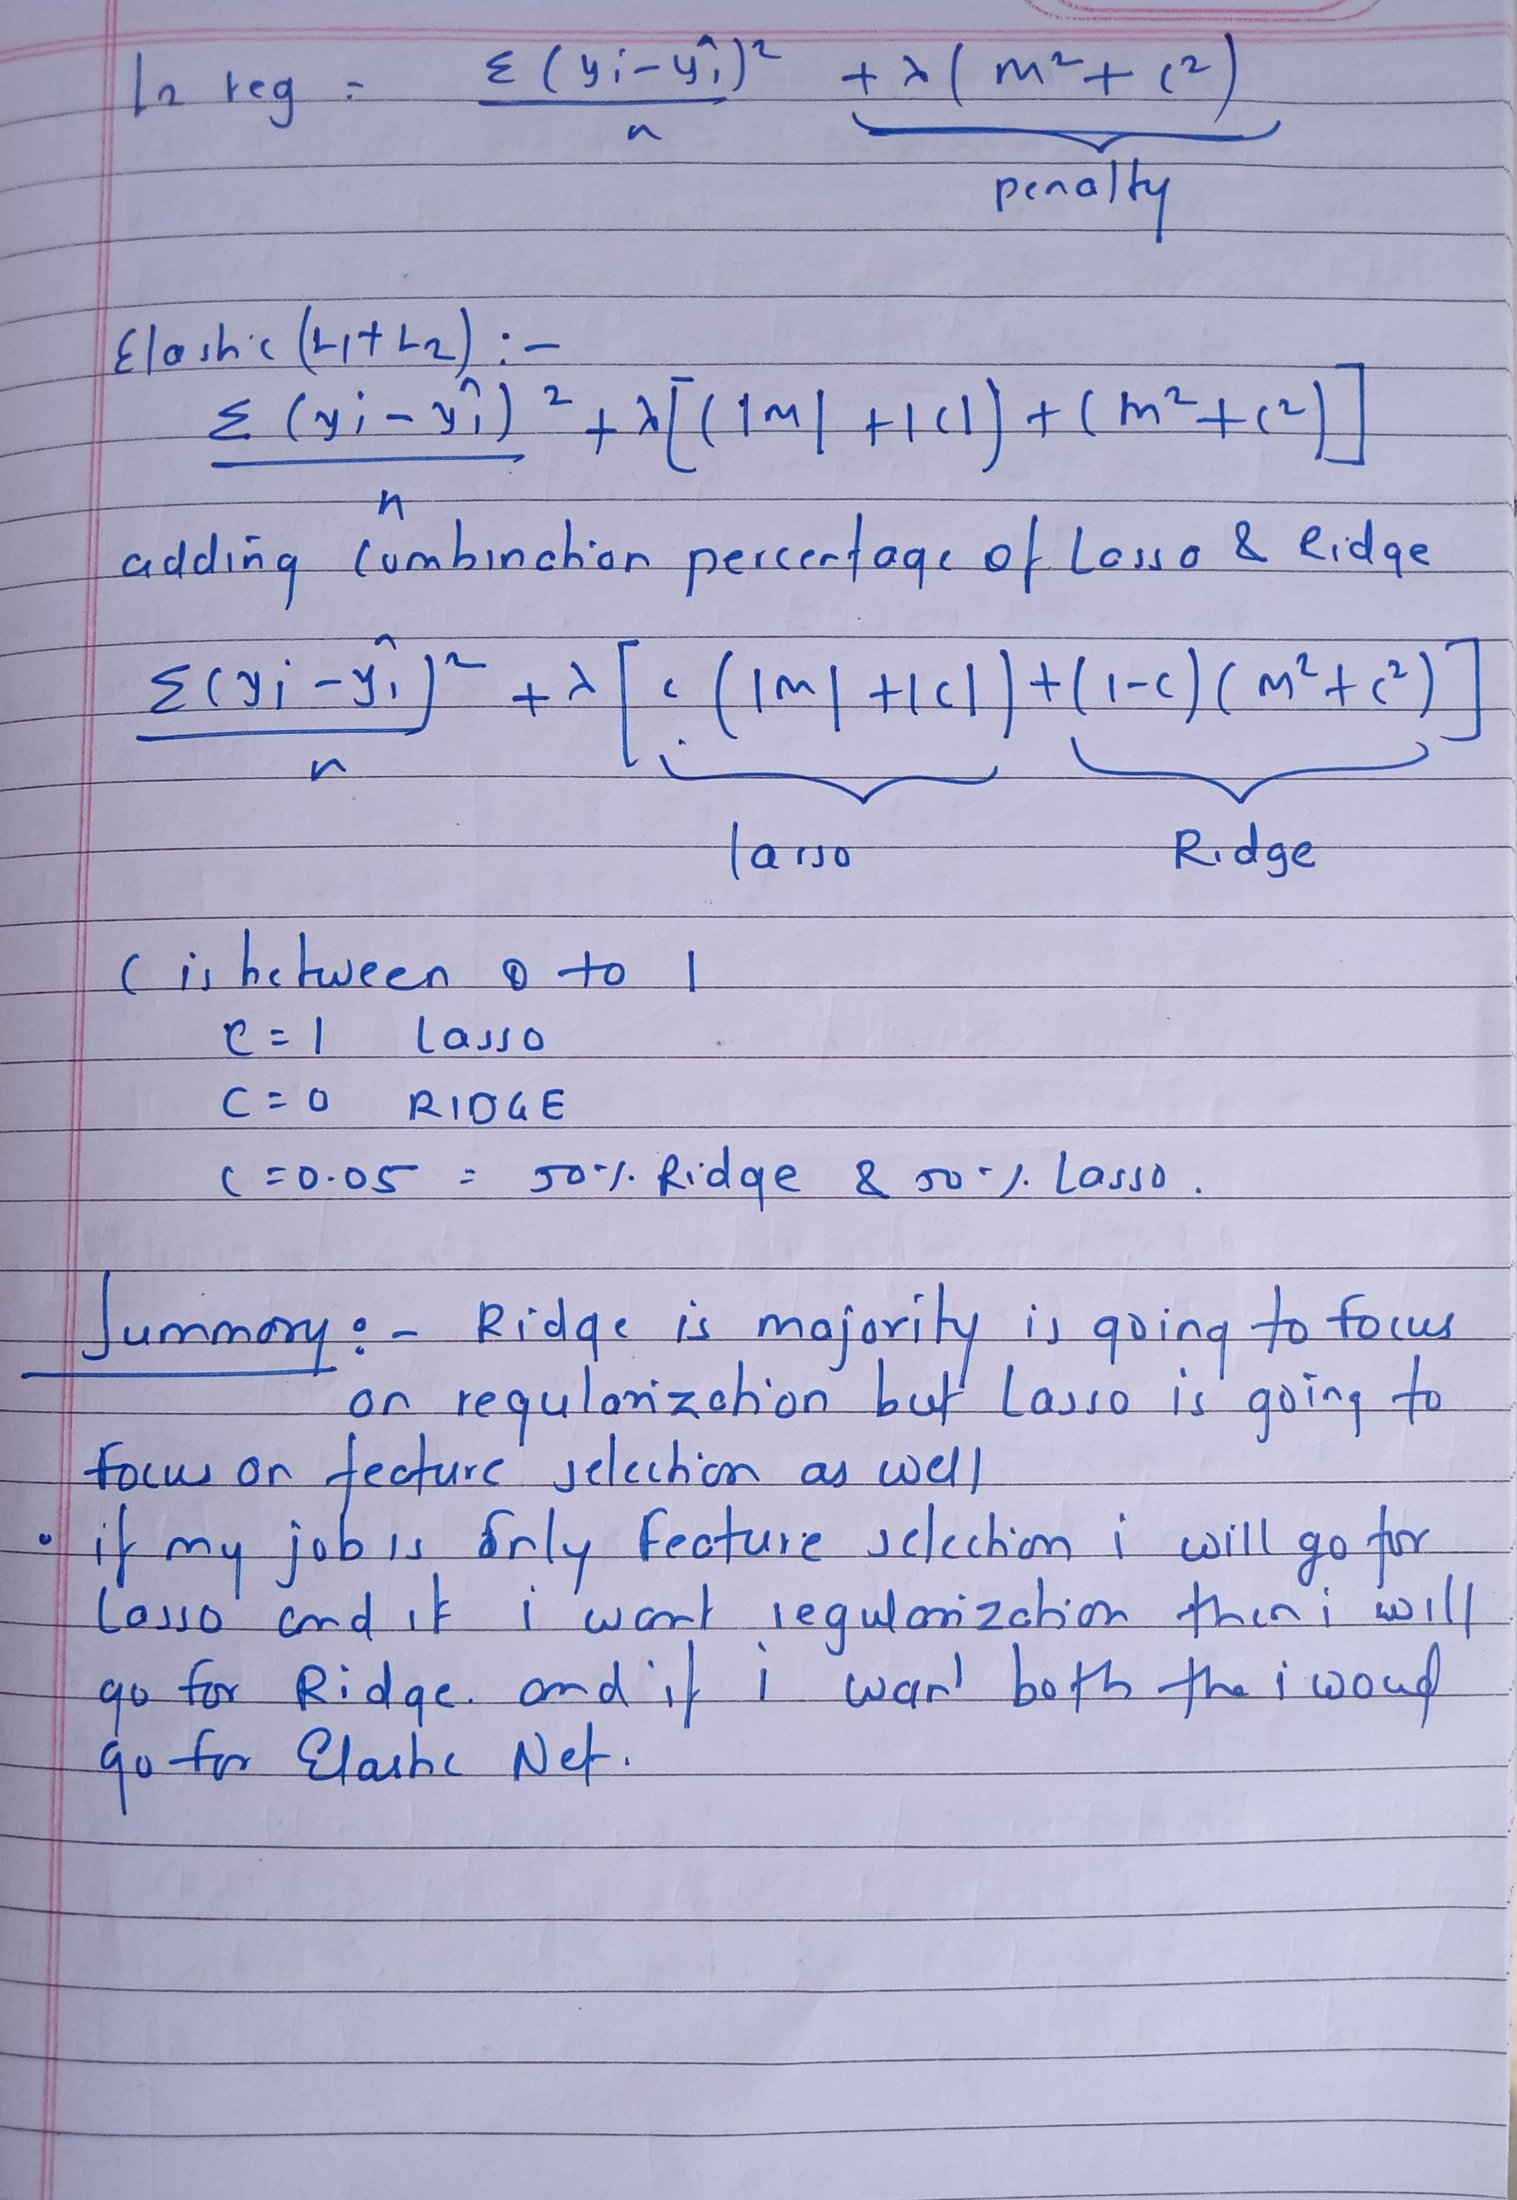 L2 reg = Σ(yi-ŷi)² + λ(m²+c²)
n
penalty
Elastic (L1+L2) :-
Σ(yi-ŷi)² + λ[(|m|+|c|)+(m²+c²)]
n
adding combination percentage of Lasso & Ridge
Σ(yi-ŷi)² + λ[c(|m|+|c|)+(1-c)(m²+c²)]
n
lasso Ridge
C is between 0 to 1
C=1 Lasso
C=0 RIDGE
C=0.05 = 50% Ridge & 50% Lasso.
Summary:- Ridge is majority is going to focus
on regularization but Lasso is going to
focus on feature selection as well
• if my job is only feature selection i will go for
Lasso and if i want regularization then i will
go for Ridge. and if i want both the i woud
go for Elastic Net.